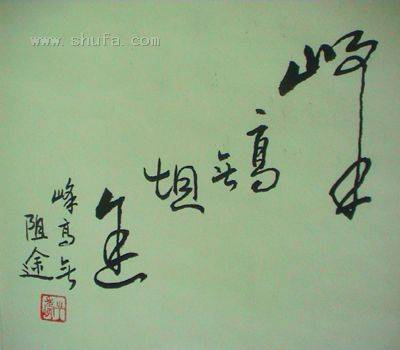 www.shufa.com
峰高无坦途
峰高无
坦途